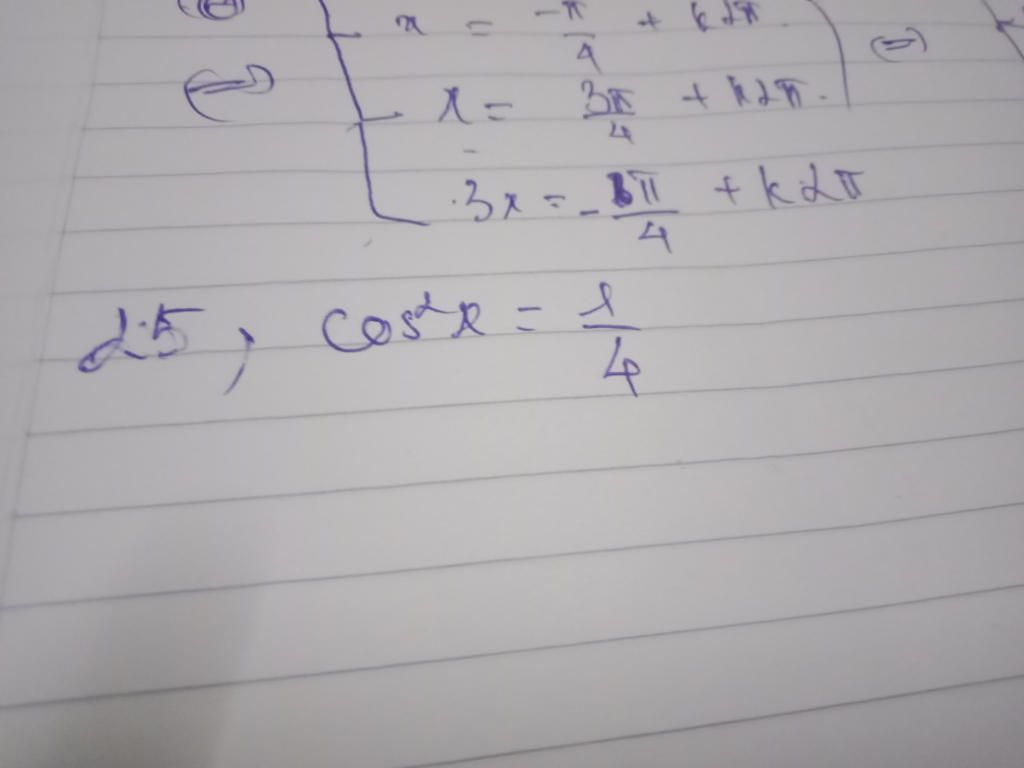 ⇔
x = -π/4 + k2π.
⇔ x = 3π/4 + k2π. ⇔
3x = -π/4 + k2π
25, cos²x = 1/4